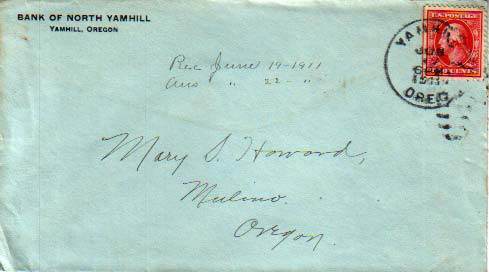 BANK OF NORTH YAMHILL
YAMHILL, OREGON
U.S. POSTAGE
CENTS
YAMH
JUN
1911
OREG
Rec June 19-1911
Ans " 22- "
Mary S. Howard,
Mulino.
Oregon.